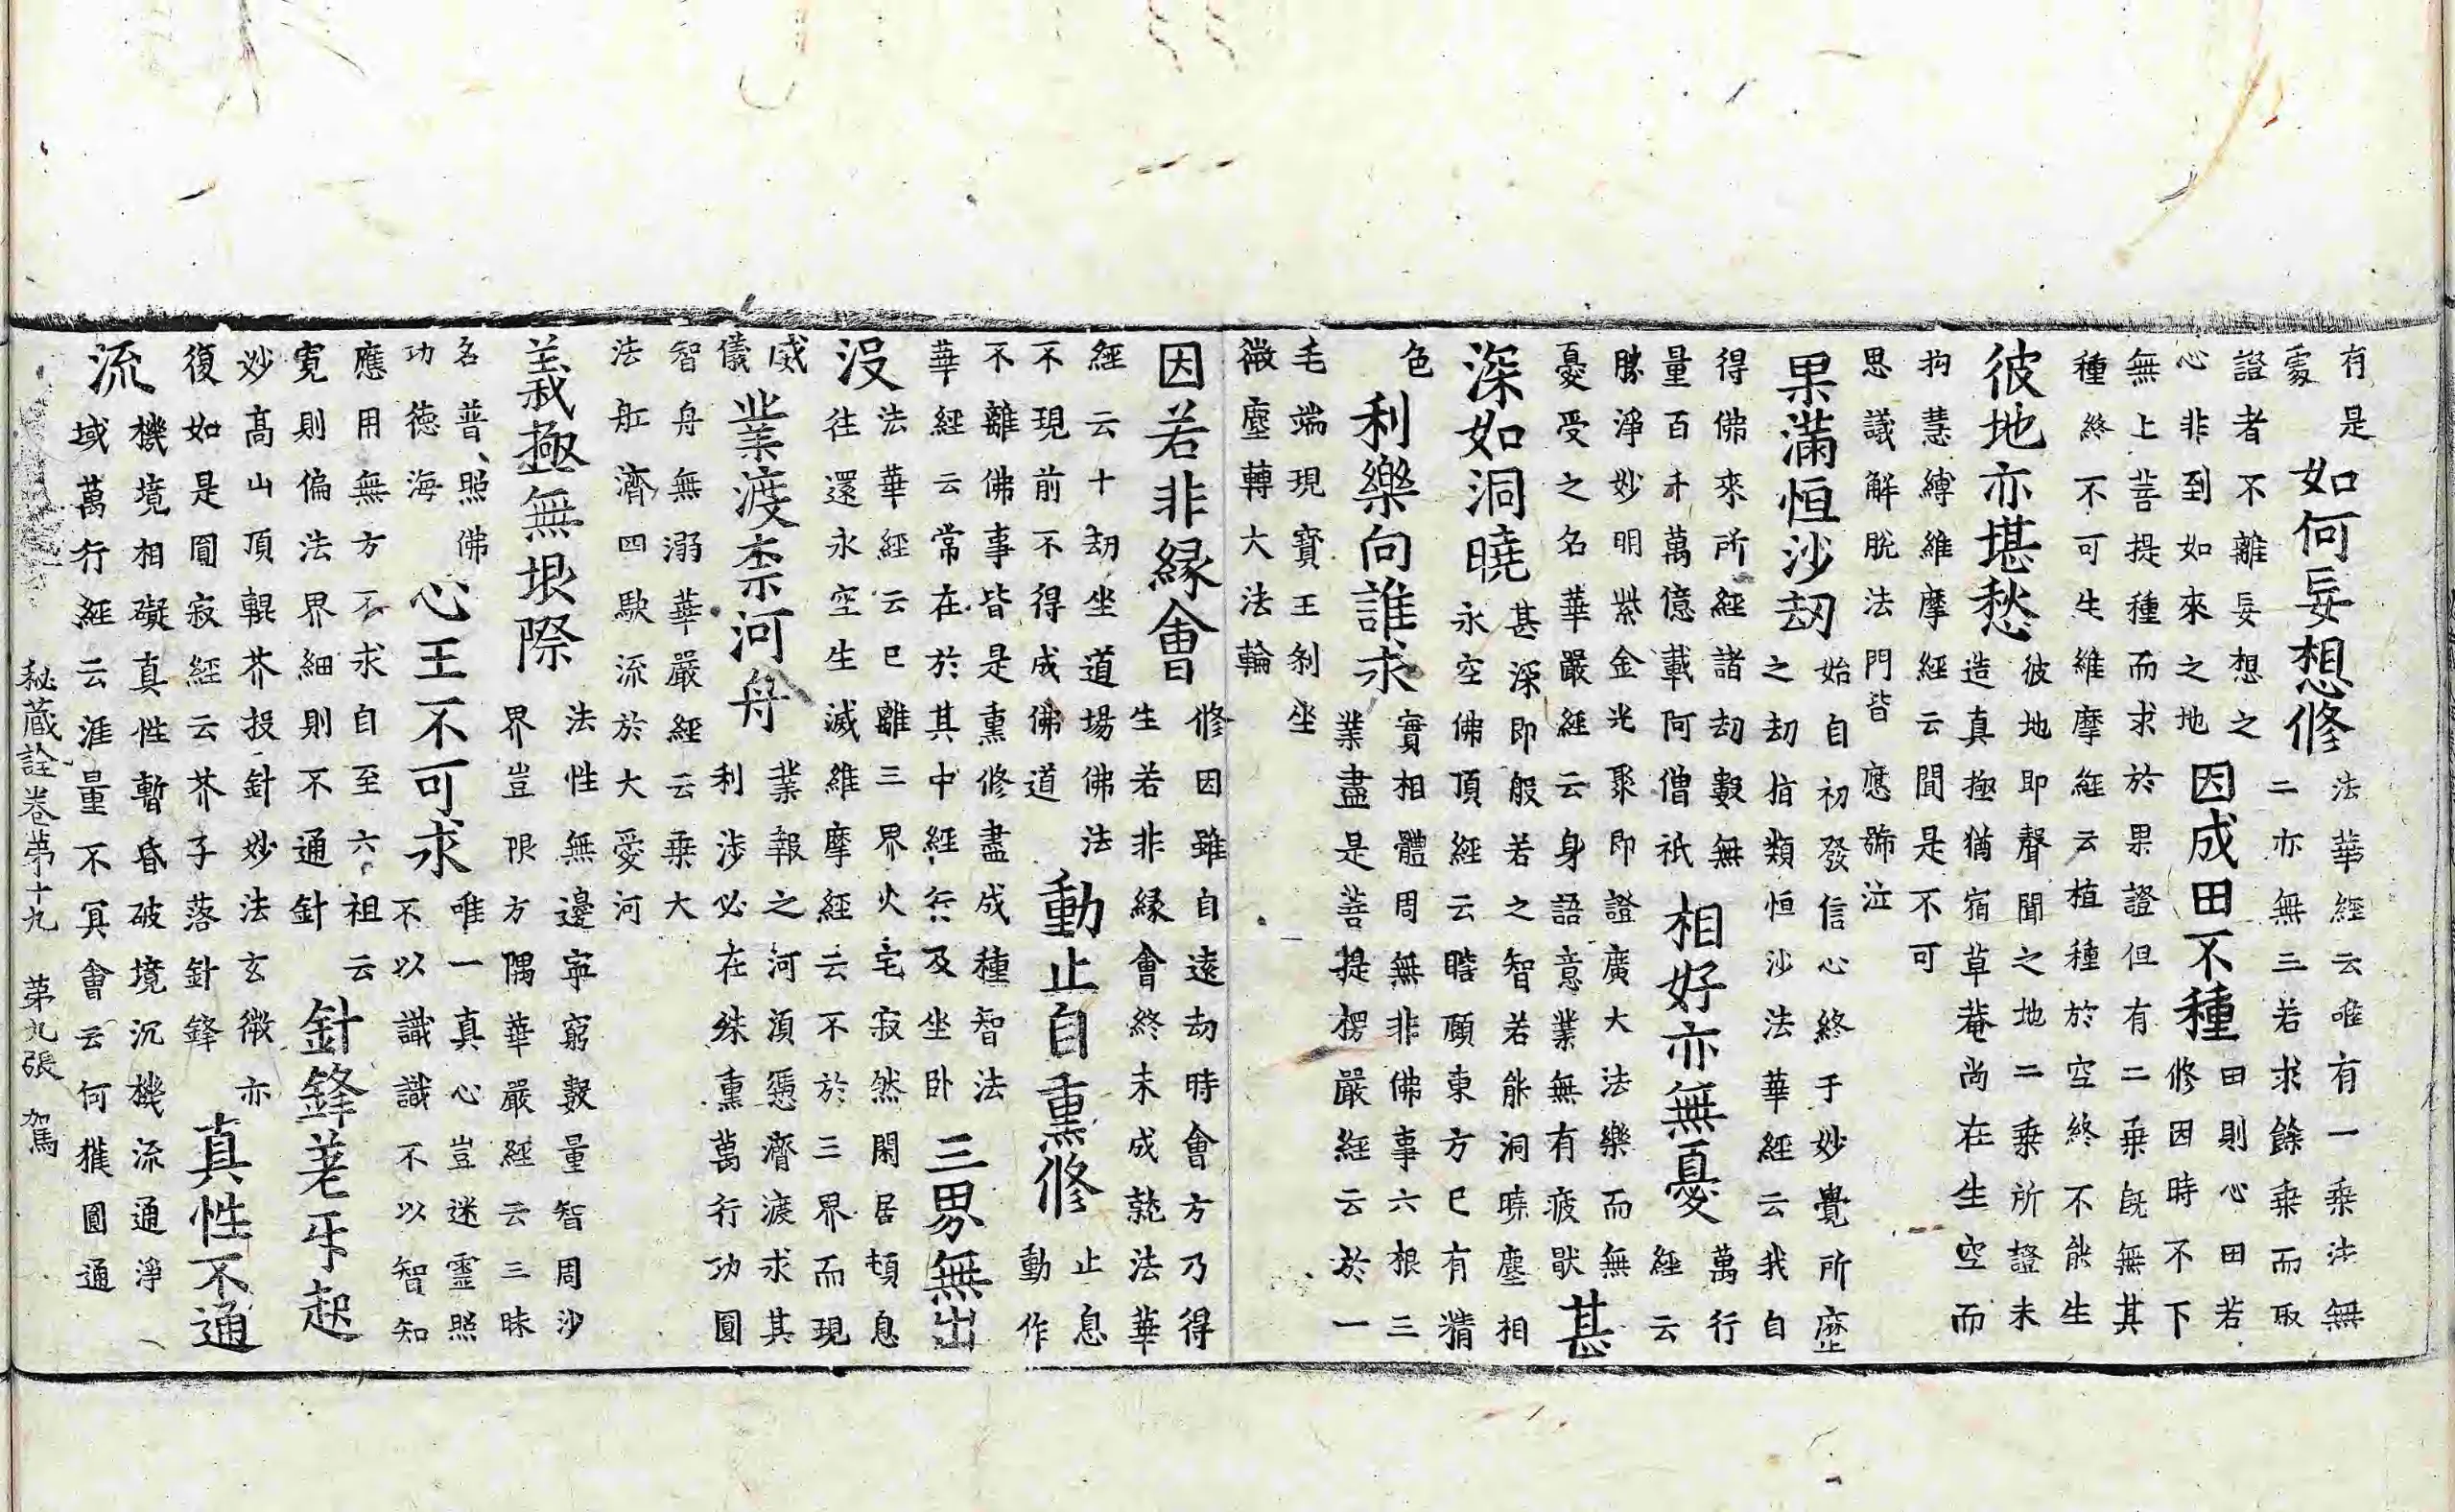 有是
處
如何妄想修
法華經云唯有一乘法無
二亦無三若求餘乘而取
證者不離妄想之
心非到如來之地
因成田不種
田則心田若
修因時不下
無上菩提種而求於果證但有二乘旣無其
種終不可生維摩經云植種於空終不能生
彼地亦堪愁
彼地即聲聞之地二乘所證未
造真極猶宿草菴尚在生空而
拘慧縛維摩經云間是不可
思議解脫法門皆應號泣
果滿恒沙刧
始自初發信心終于妙覺所歷
之刧指類恒沙法華經云我自
得佛來所經諸刧數無
量百千萬億載阿僧祇
相好亦無憂
萬行
經云
勝淨妙明紫金光聚即證廣大法樂而無
憂受之名華嚴經云身語意業無有疲猒
甚
深如洞曉
甚深即般若之智若能洞曉塵相
永空佛頂經云瞻顧東方已有精
色
利樂向誰求
實相體周無非佛事六根三
業盡是菩提楞嚴經云於一
毛端現寶王刹坐
微塵轉大法輪
因若非緣會
修因雖自遠刧時會方乃得
生若非緣會終未成就法華
經云十刧坐道場佛法
不現前不得成佛道
動止自熏修
止息
動作
不離佛事皆是熏修盡成種智法
華經云常在於其中經行及坐卧
三界無出
沒
法華經云已離三界火宅寂然閑居頓息
往還永空生滅維摩經云不於三界而現
威
儀
業渡柰河舟
業報之河須憑濟渡求其
利涉必在殊熏萬行功圓
智舟無溺華嚴經云乘大
法舡濟四駛流於大愛河
義極無垠際
法性無邊寧窮數量智周沙
界豈限方隅華嚴經云三昧
名普照佛
功德海
心王不可求
唯一真心豈迷靈照
不以識識不以智知
應用無方不求自至六祖云
寬則偏法界細則不通針
針鋒老牙起
妙高山頂輥芥投針妙法玄微亦
復如是圓寂經云芥子落針鋒
真性不通
流
機境相礙真性暫昏破境沉機流通淨
域萬行經云涯量不冥會云何獲圓通
秘藏詮卷第十九 第九張 駕